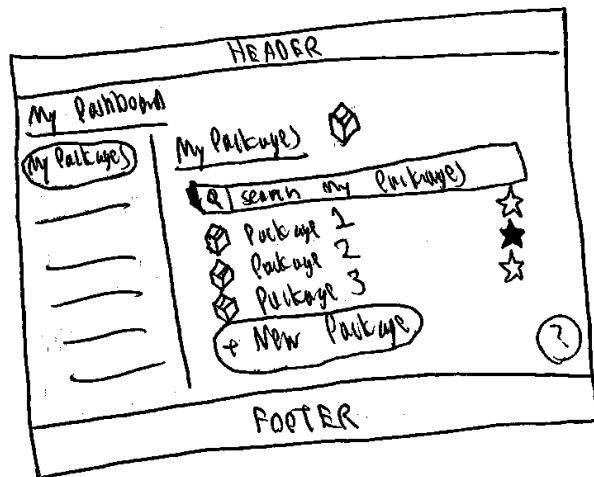 HEADER
My Dashboard
My Packages
My Packages
search my packages
Package 1
Package 2
Package 3
+ New Package
?
FOOTER